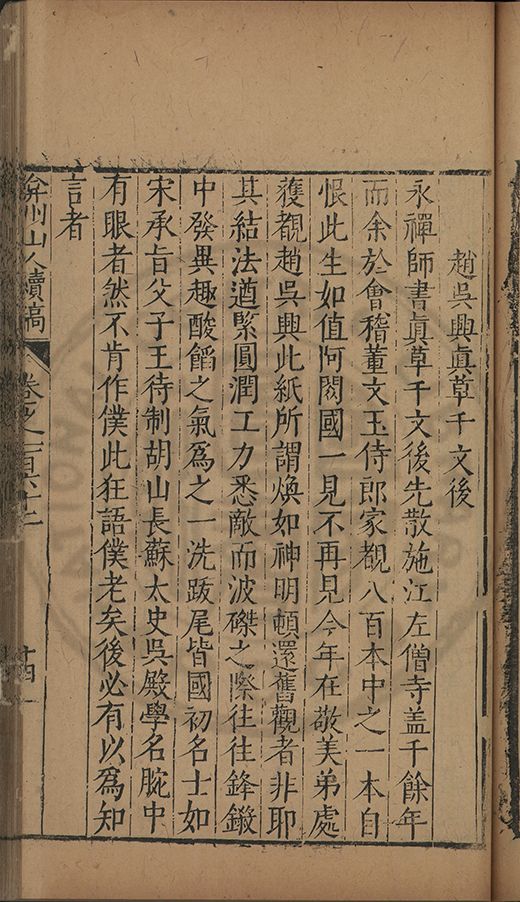 趙吳興眞草千文後
永禪師書眞草千文後先散施江左僧寺盖千餘年
而余於會稽董文玉侍郎家覩八百本中之一本自
恨此生如值阿閦國一見不再見今年在敬美弟處
獲觀趙吳興此紙所謂煥如神明頓還舊觀者非耶
其結法遒緊圓潤工力悉敵而波磔之際往往鋒鎩
中發異趣酸餡之氣爲之一洗跋尾皆國初名士如
宋承旨父子王待制胡山長蘇太史吳殿學名腕中
有眼者然不肯作僕此狂語僕老矣後必有以爲知
言者
弇州山人續稿
卷之一百六十二
十四